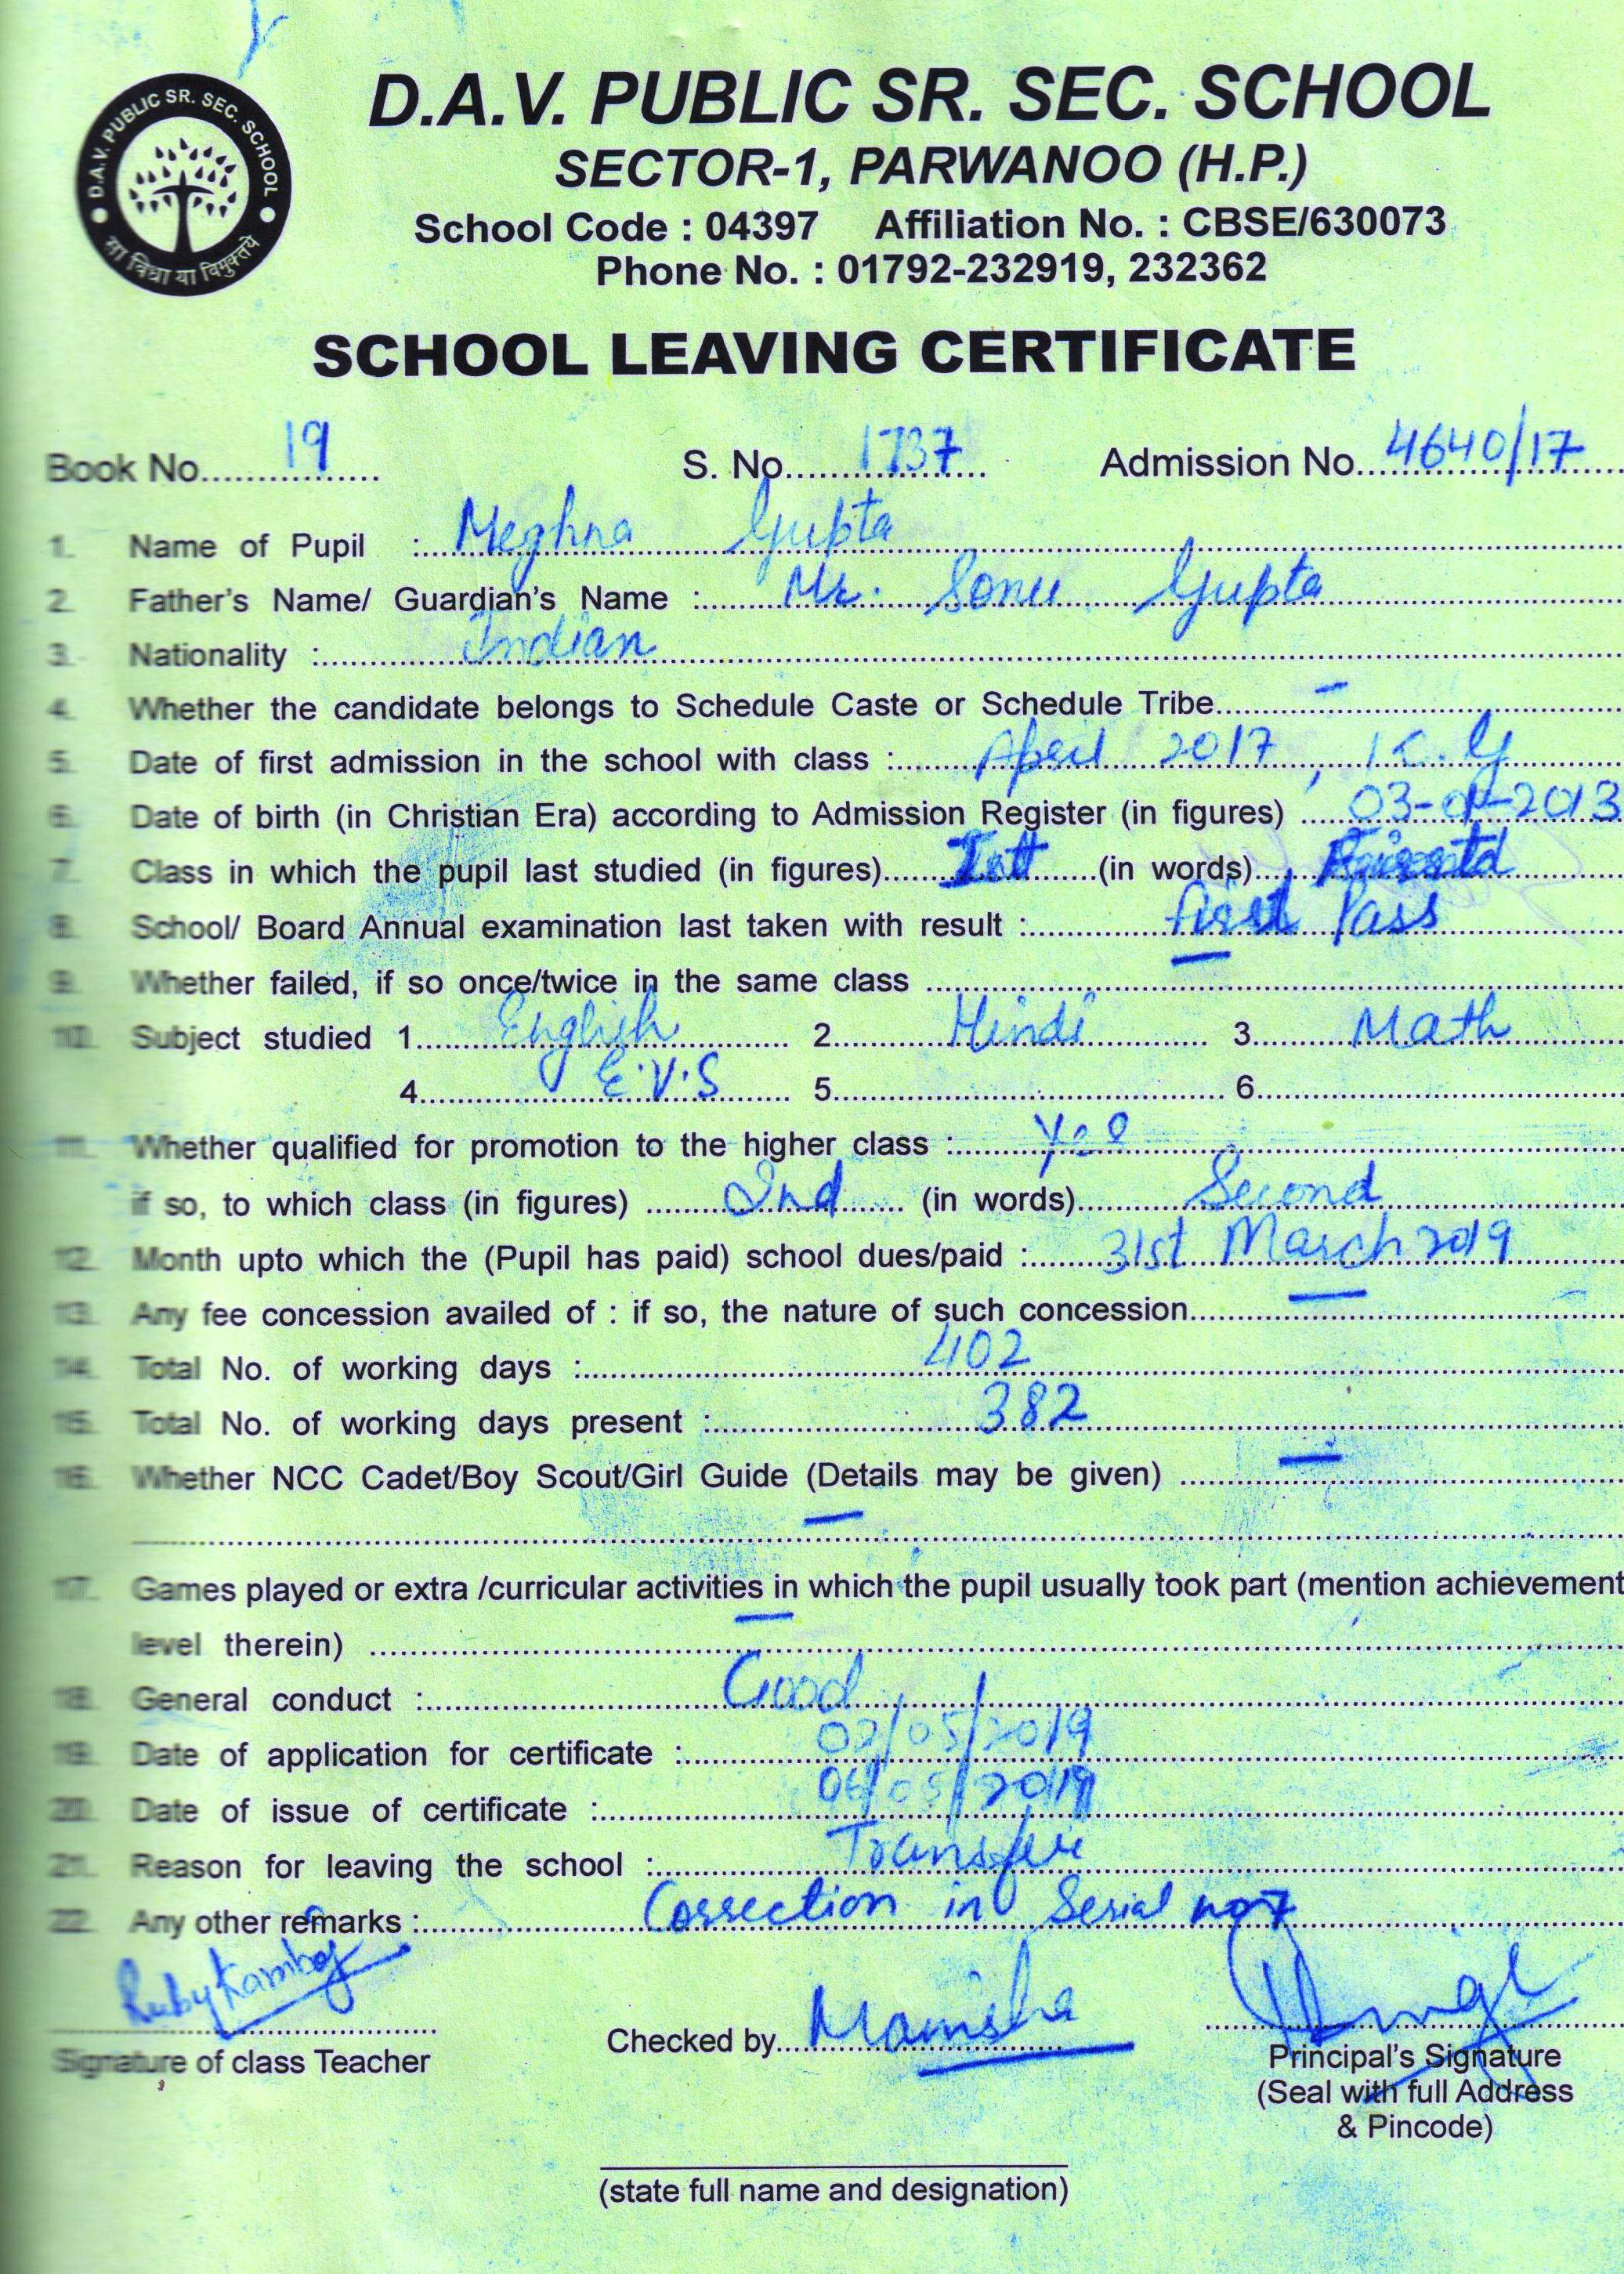 D.A.V. PUBLIC SR. SEC. SCHOOL
सा विद्या या विमुक्तये
D.A.V. PUBLIC SR. SEC. SCHOOL
SECTOR-1, PARWANOO (H.P.)
School Code : 04397 Affiliation No. : CBSE/630073
Phone No. : 01792-232919, 232362
SCHOOL LEAVING CERTIFICATE
Book No. 19 S. No. 1737 Admission No. 4640/17
1. Name of Pupil : Meghna Gupta
2. Father's Name/ Guardian's Name : Mr. Sonu Gupta
3. Nationality : Indian
4. Whether the candidate belongs to Schedule Caste or Schedule Tribe. –
5. Date of first admission in the school with class : April 2017, K.G
6. Date of birth (in Christian Era) according to Admission Register (in figures) 2013
7. Class in which the pupil last studied (in figures) (in words)
8. School/ Board Annual examination last taken with result : first Pass
9. Whether failed, if so once/twice in the same class –
10. Subject studied 1. English 2. Hindi 3. Math
4. E.V.S 5. 6.
11. Whether qualified for promotion to the higher class : Yes
if so, to which class (in figures) IInd (in words) Second
12. Month upto which the (Pupil has paid) school dues/paid : 31st March 2019
13. Any fee concession availed of : if so, the nature of such concession. –
14. Total No. of working days : 402
15. Total No. of working days present : 382
16. Whether NCC Cadet/Boy Scout/Girl Guide (Details may be given) –
–
17. Games played or extra /curricular activities in which the pupil usually took part (mention achievement
level therein) –
18. General conduct : Good
19. Date of application for certificate : 02/05/2019
20. Date of issue of certificate : 06/05/2019
21. Reason for leaving the school : Transfer
22. Any other remarks : Correction in Serial no 7
Ruby Kamboj
Signature of class Teacher
Checked by. Manisha
Principal's Signature
(Seal with full Address
& Pincode)
(state full name and designation)